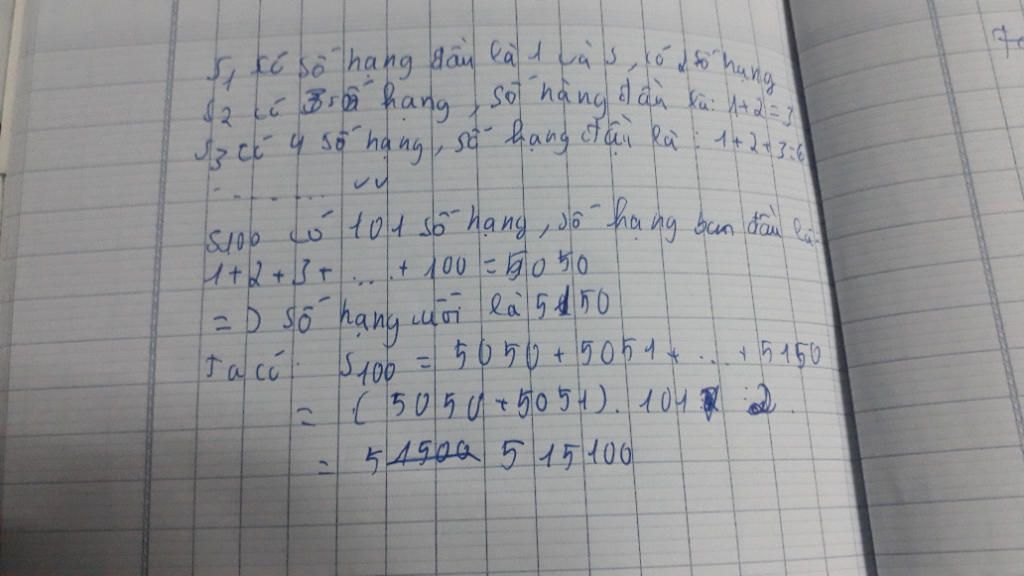 S1 có số hạng đầu là 1 và S, có 2 số hạng
S2 có 3 số hạng, số hàng đầu là: 1+2=3
S3 có 4 số hạng, số hạng đầu là: 1+2+3=6
S100 có 101 số hạng, số hạng ban đầu là
1+2+3+...+100=5050
=> số hạng cuối là 5150
Ta có: S100 = 5050+5051+...+5150
= (5050+5051).101:2.
= 515100